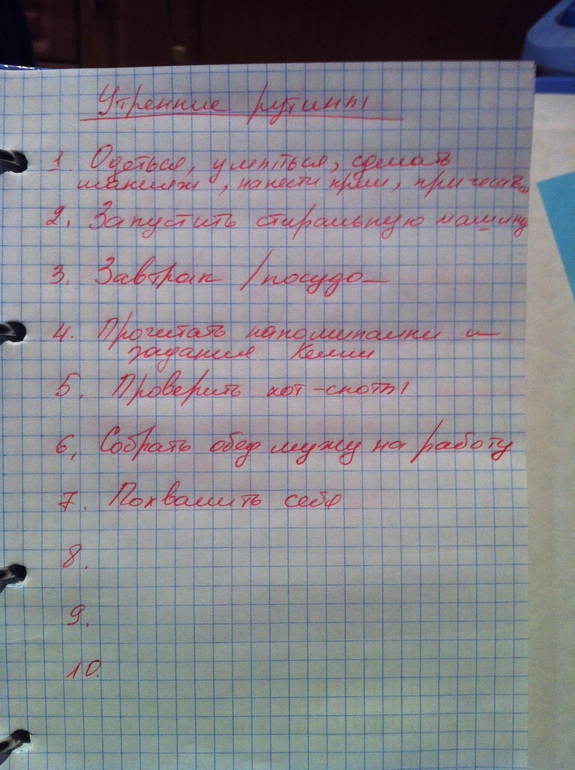 Утренние рутины
1. Одеться, умыться, сделать
макияж, нанести крем, причесаться
2. Запустить стиральную машину
3. Завтрак / посуда
4. Прочитать напоминалки и
задания Келли
5. Проверить хот-споты
6, Собрать обед мужу на работу
7. Похвалить себя
8.
9.
10.